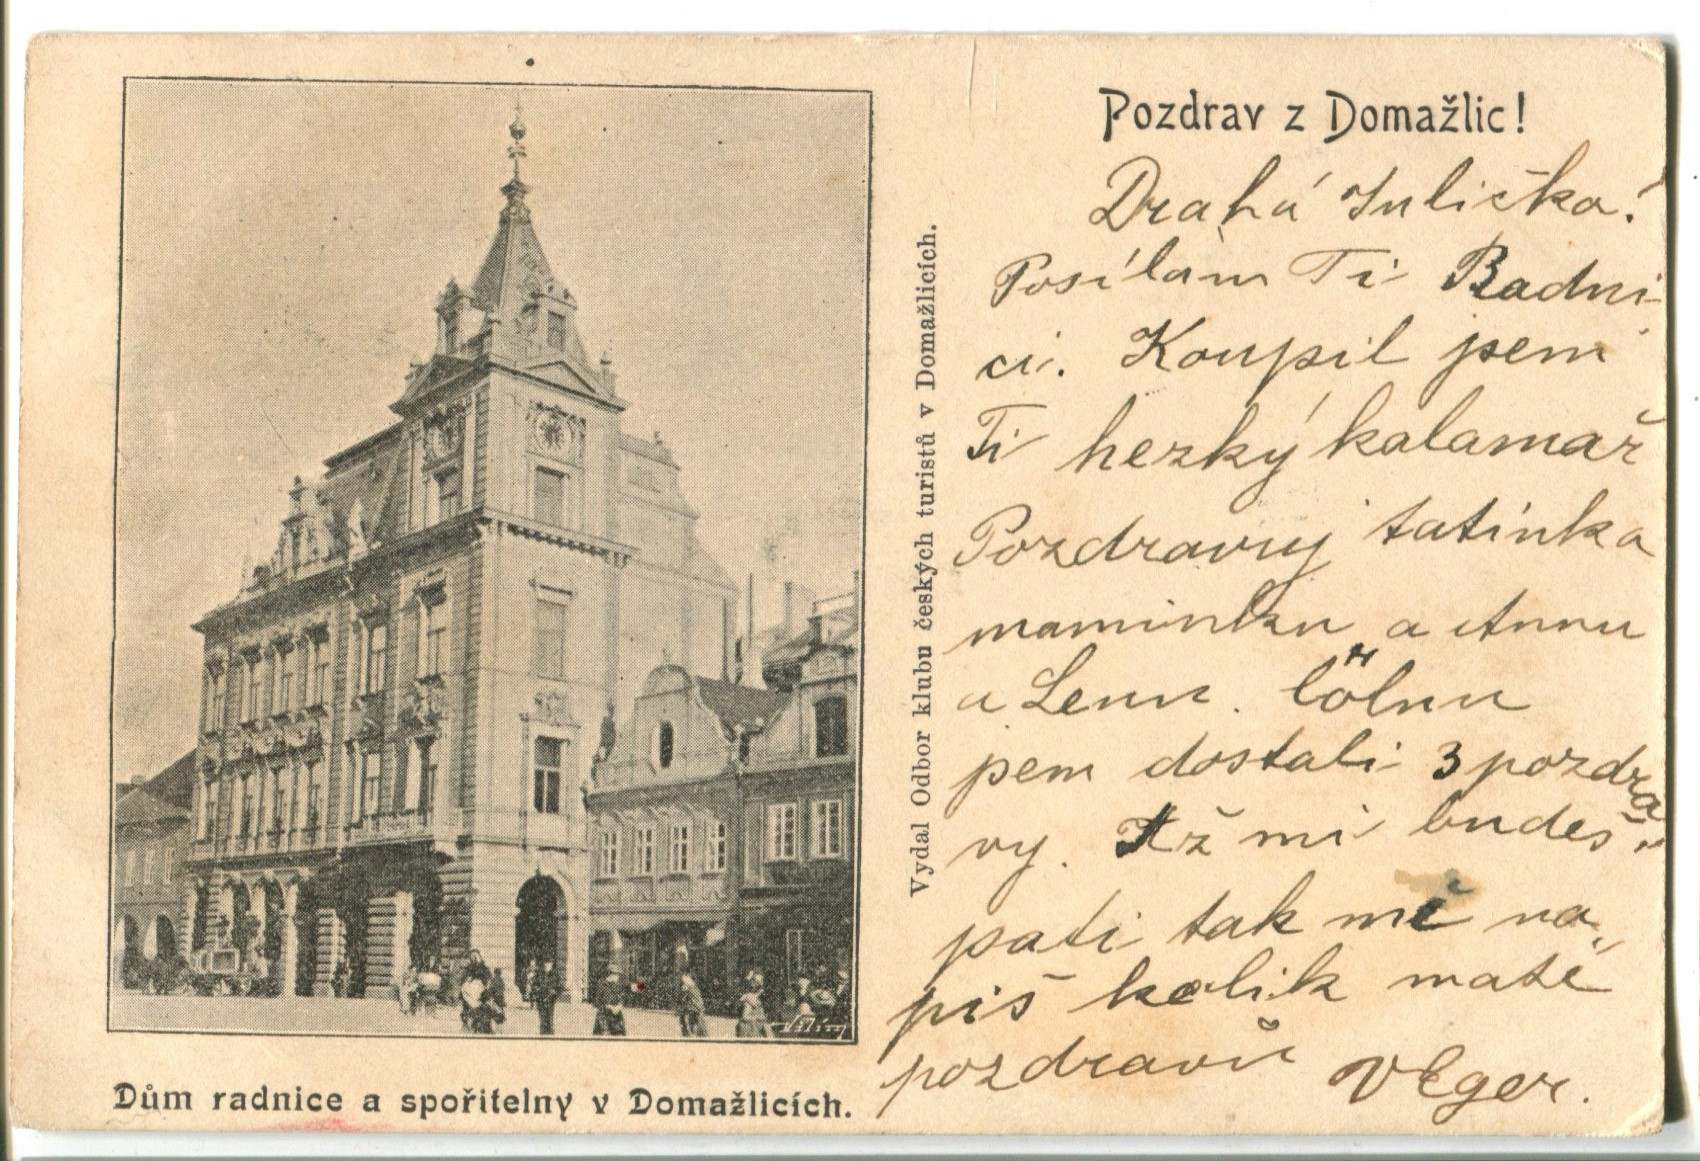 Pozdrav z Domažlic!
Drahá Juličko!
Posílám Ti Radni-
ci. Koupil jsem
Ti hezký kalamař
Pozdravuj tatínka
maminku a Annu
a Lenu.
jsem dostali 3 pozdra
vy. Až mi budeš
psati tak mě na„
piš kolik máte
pozdravů
Vydal Odbor klubu českých turistů v Domažlicích.
Dům radnice a spořitelny v Domažlicích.